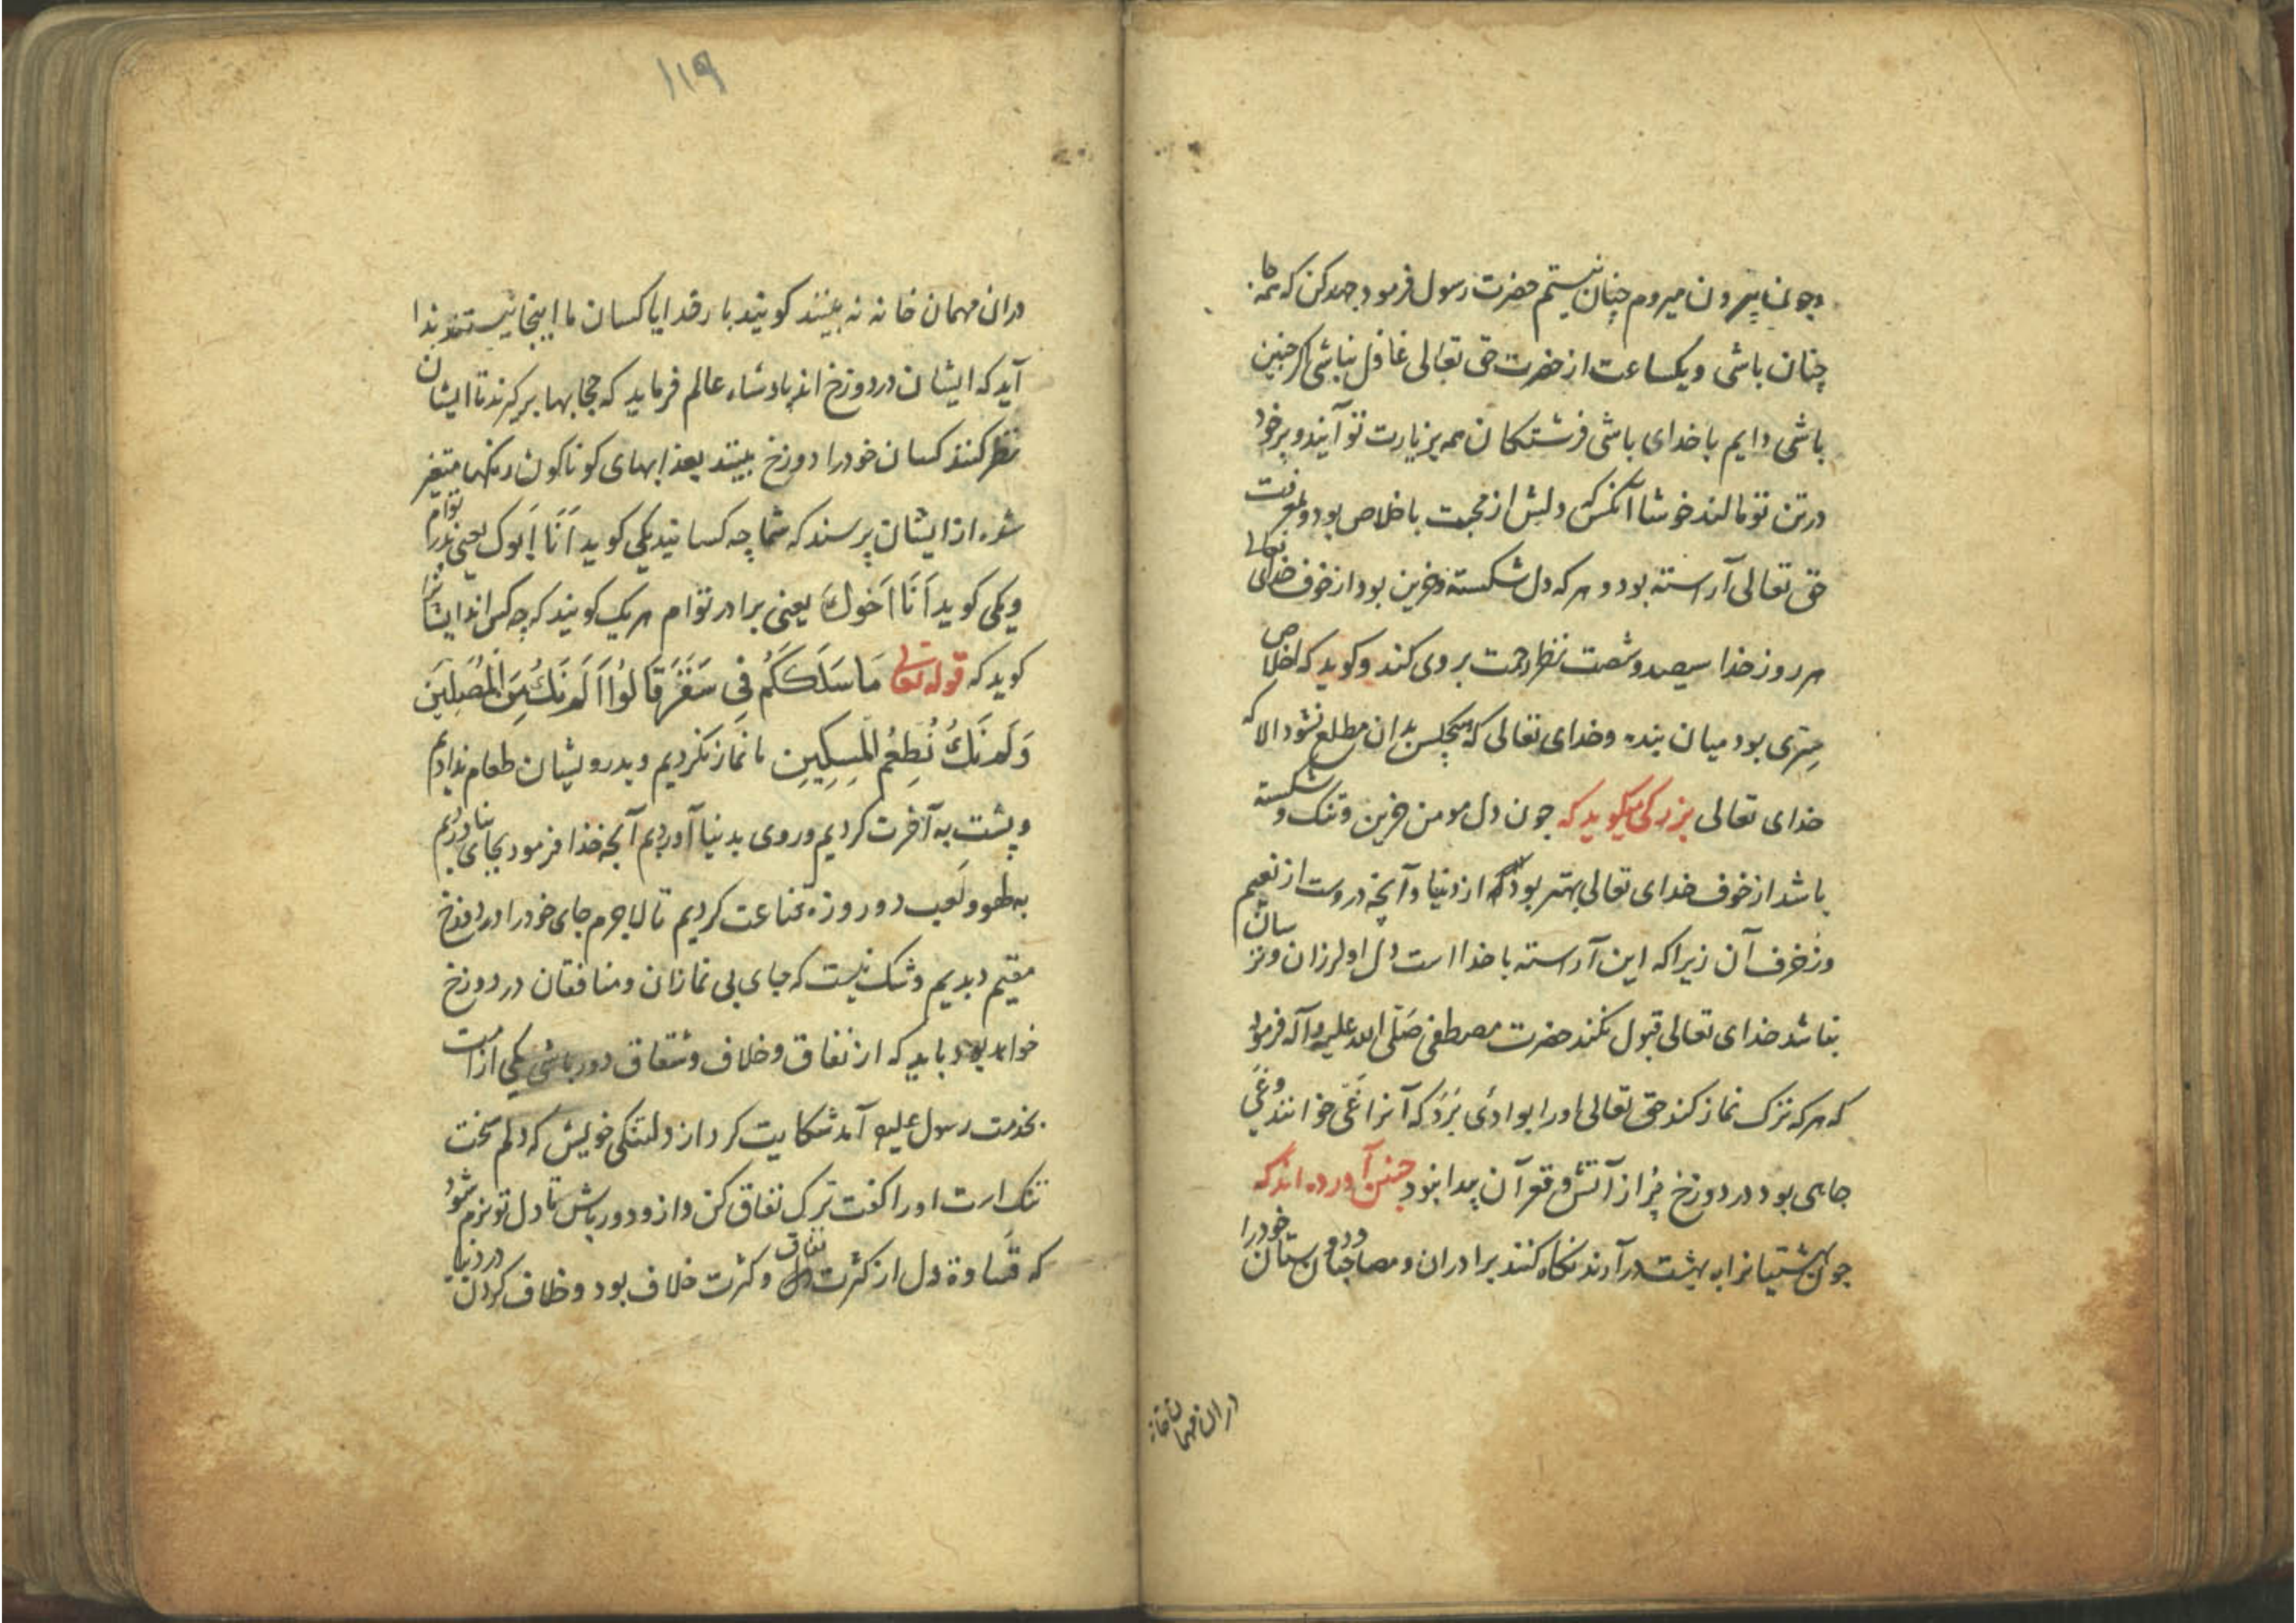 وچون بیرون میروم چنان نیستم حضرت رسول فرمود جهد کن که همه
چنان باشی و یکساعت از حضرت حق تعالی غافل نباشی اگر چنین
باشی دایم با خدای باشی فرشتکان همه بزیارت تو آیند و پر خود
در تن تو مالند خوشا آنکس که دلش از محبت با خلاص بود و بمعرفت
حق تعالی آراسته بود و هر که دل شکسته و حزین بود از خوف خدای تعالی
هر روز خدا سیصد و شصت نظر رحمت بر وی کند و کوید که اخلاص
سِرّی بود میان بنده و خدای تعالی که هیچکس بدان مطلع نشود الا که
خدای تعالی بزرکی میکوید که چون دل مومن حزین و تنک و شکسته
باشد از خوف خدای تعالی بهتر بود که از دنیا و آنچه دروست از نعیم
و زخرف آن زیرا که این آراسته با خدا است دل او لرزان و ترسان
نباشد خدای تعالی قبول نکند حضرت مصطفی صَلّی الله علیه و آله فرمود
که هر که ترک نماز کند حق تعالی اورا بوادئ بَرَد که آنرا غَی خوانند و غَی
چاهی بود در دوزخ پُر از آتش و قعر آن پیدا نبود چنین آورده اند که
چون بهشتیانرا به بهشت درآرند نکاه کنند برادران و مصاحبان و دوستان خودرا
دران مهمان خانه
۱۱۹
دران مهمان خانه نه بینند کویند بار خدایا کسان ما اینجا نیستند ندا
آید که ایشان در دوزخ اند پادشاه عالم فرماید که حجابها برکرند تا ایشان
نظر کنند کسان خود را دوزخ بینند بعذابهای کوناکون رنکها متغیر
شده از ایشان پرسند که شما چه کسانید یکی کوید اَنَا اَبوک یعنی پدر توام
ویکی کوید اَنَا اَخوکَ یعنی برادر توام هر یک کویند که چه کس اند ایشانرا
کوید که قوله تعالی مَا سَلَكَكُم فِی سَقَرَ قَالُوا لَمْ نَكُ مِنَ الْمُصَلِينَ
وَلَمْ نَكُ نُطْعِمُ الْمِسكِينِ ما نماز نکردیم و بدرویشان طعام ندادیم
و پشت به آخرت کردیم و روی بدنیا آوردیم آنچه خدا فرمود بجای نیاوردیم
به لهو و لَعِب دو روزه قناعت کردیم تا لاجرم جای خود را در دوزخ
مقیم دیدیم و شک نیست که جای بی نمازان و منافقان در دوزخ
خواهد بود باید که از نفاق و خلاف و شقاق دور باشی یکی از امت
بخدمت رسول علیه آمد شکایت کرد از دلتنکی خویش که دلم سخت
تنک است اورا کفت ترک نفاق کن و ازو دور باش تا دل تو نرم شود
که قَساوة دل از کثرت نفاق و کثرت خلاف بود و خلاف کردن در دنیا